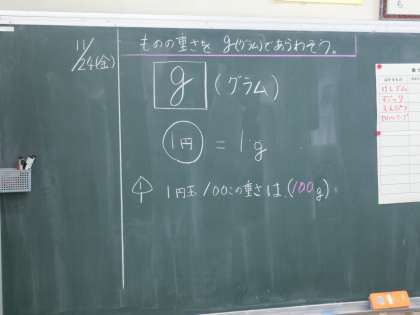 11/24(金)
ものの重さを g(グラム)であらわそう。
g (グラム)
1円 = 1g
1 1円玉100この重さは、(100g)。
けしゴム